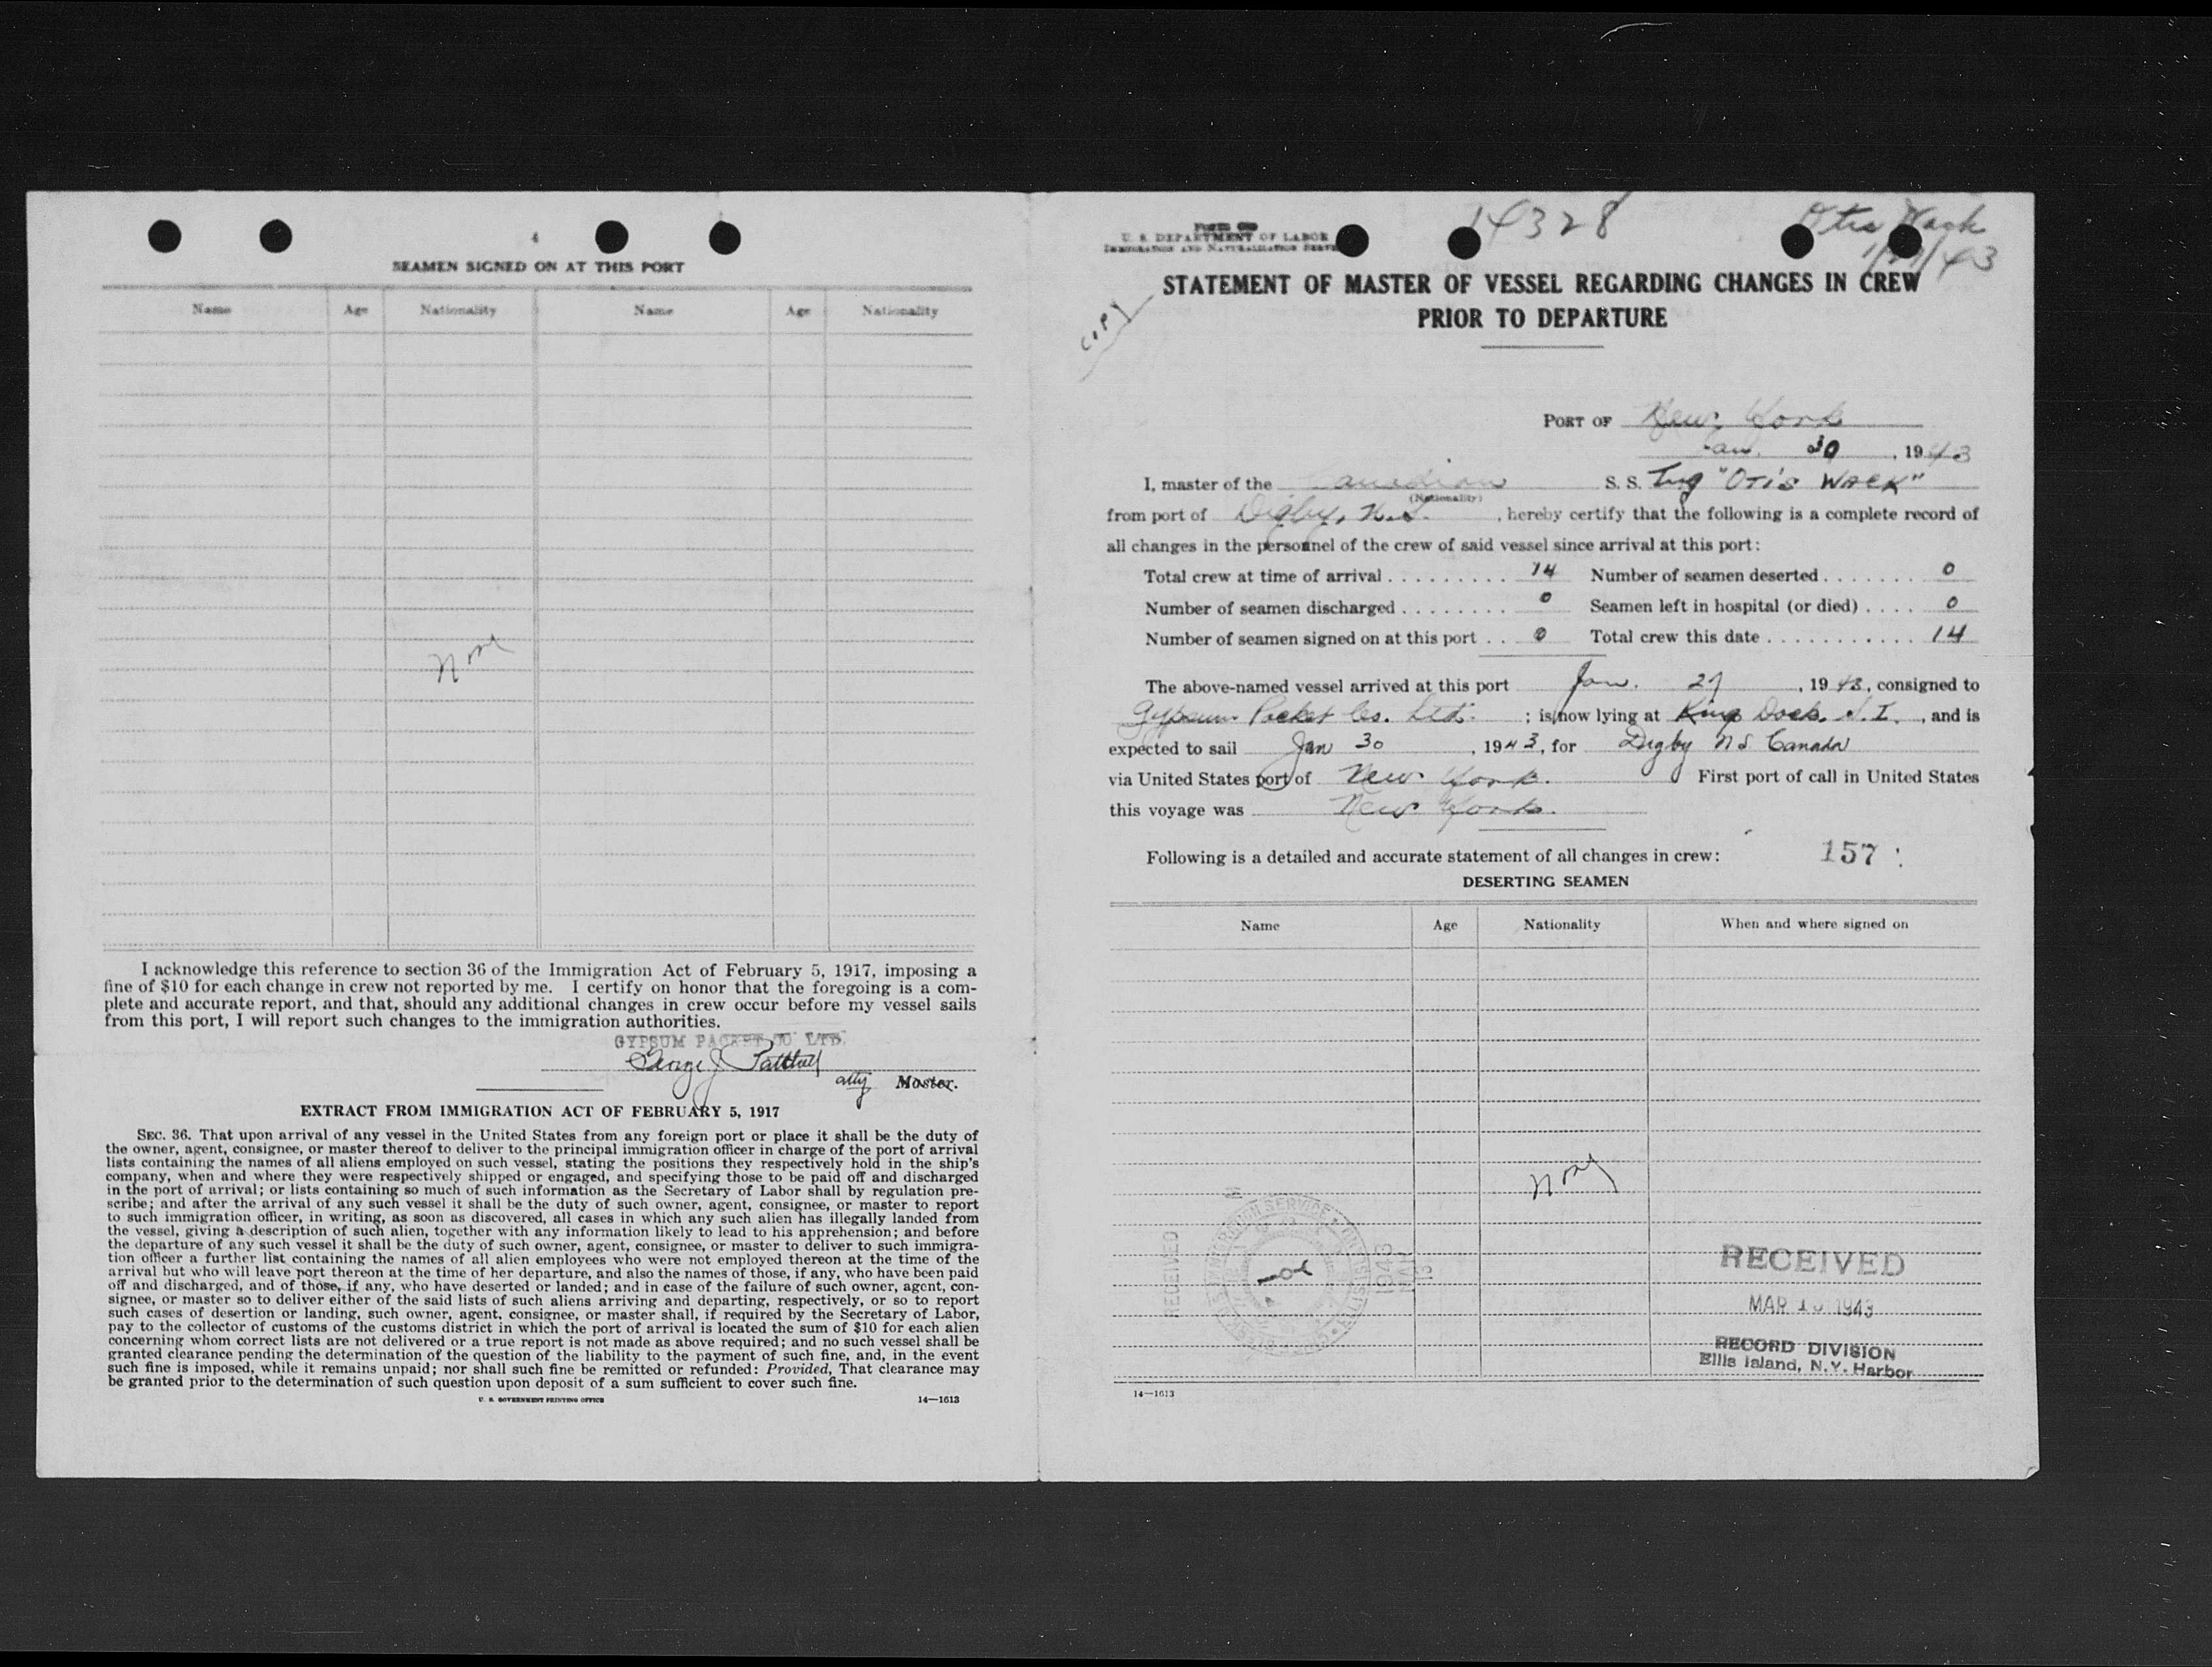 4
SEAMEN SIGNED ON AT THIS PORT
Name Age Nationality Name Age Nationality
None
I acknowledge this reference to section 36 of the Immigration Act of February 5, 1917, imposing a
fine of $10 for each change in crew not reported by me. I certify on honor that the foregoing is a com-
plete and accurate report, and that, should any additional changes in crew occur before my vessel sails
from this port, I will report such changes to the immigration authorities.
GYPSUM PACKET CO LTD.
George J.
atty Master.
EXTRACT FROM IMMIGRATION ACT OF FEBRUARY 5, 1917
SEC. 36. That upon arrival of any vessel in the United States from any foreign port or place it shall be the duty of
the owner, agent, consignee, or master thereof to deliver to the principal immigration officer in charge of the port of arrival
lists containing the names of all aliens employed on such vessel, stating the positions they respectively hold in the ship's
company, when and where they were respectively shipped or engaged, and specifying those to be paid off and discharged
in the port of arrival; or lists containing so much of such information as the Secretary of Labor shall by regulation pre-
scribe; and after the arrival of any such vessel it shall be the duty of such owner, agent, consignee, or master to report
to such immigration officer, in writing, as soon as discovered, all cases in which any such alien has illegally landed from
the vessel, giving a description of such alien, together with any information likely to lead to his apprehension; and before
the departure of any such vessel it shall be the duty of such owner, agent, consignee, or master to deliver to such immigra-
tion officer a further list containing the names of all alien employees who were not employed thereon at the time of the
arrival but who will leave port thereon at the time of her departure, and also the names of those, if any, who have been paid
off and discharged, and of those, if any, who have deserted or landed; and in case of the failure of such owner, agent, con-
signee, or master so to deliver either of the said lists of such aliens arriving and departing, respectively, or so to report
such cases of desertion or landing, such owner, agent, consignee, or master shall, if required by the Secretary of Labor,
pay to the collector of customs of the customs district in which the port of arrival is located the sum of $10 for each alien
concerning whom correct lists are not delivered or a true report is not made as above required; and no such vessel shall be
granted clearance pending the determination of the question of the liability to the payment of such fine, and, in the event
such fine is imposed, while it remains unpaid; nor shall such fine be remitted or refunded: Provided, That clearance may
be granted prior to the determination of such question upon deposit of a sum sufficient to cover such fine.
U. S. GOVERNMENT PRINTING OFFICE 14—1613
U. S. DEPARTMENT OF LABOR
IMMIGRATION AND NATURALIZATION SERVICE
14328
Otis Wack
COPY
STATEMENT OF MASTER OF VESSEL REGARDING CHANGES IN CREW
PRIOR TO DEPARTURE
PORT OF New York
Jan. 30, 1943
I, master of the Canadian S. S. Tug "OTIS WACK"
(Nationality)
from port of Digby, N.S., hereby certify that the following is a complete record of
all changes in the personnel of the crew of said vessel since arrival at this port:
Total crew at time of arrival . . . . . . . . . 14 Number of seamen deserted . . . . . . . 0
Number of seamen discharged . . . . . . . . 0 Seamen left in hospital (or died) . . . . 0
Number of seamen signed on at this port . . 0 Total crew this date . . . . . . . . . . . . 14
The above-named vessel arrived at this port Jan. 27, 1943, consigned to
Gypsum Packet Co. Ltd. ; is now lying at King Dock, S.I., and is
expected to sail Jan 30, 1943, for Digby NS Canada
via United States port of New York. First port of call in United States
this voyage was New York.
Following is a detailed and accurate statement of all changes in crew: 157
DESERTING SEAMEN
Name Age Nationality When and where signed on
None
RECEIVED
1943
MAR
15
RECEIVED
MAR 1943
RECORD DIVISION
Ellis Island, N.Y. Harbor
14—1613